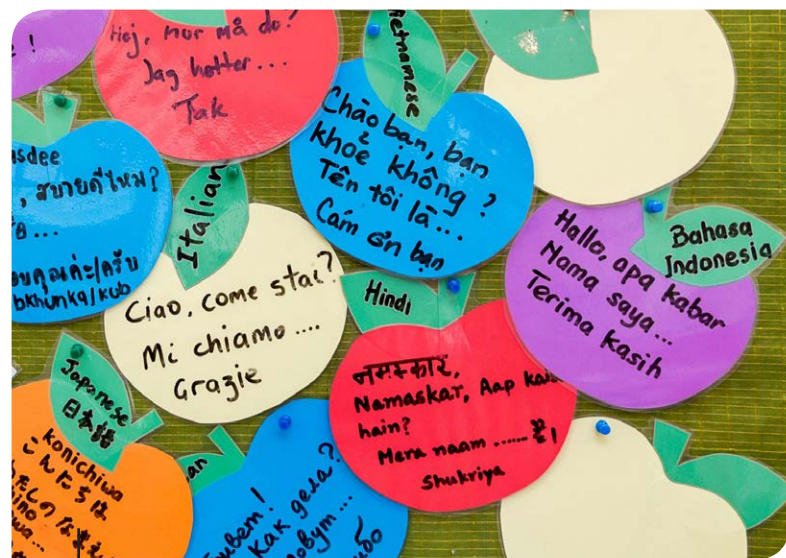 !
Hej, hur må do?
Jag hetter...
Tak
Vietnamese
Chào bạn, bạn
khoẻ không?
Tên tôi là...
Cám ơn bạn
สบายดีไหม?
...
ขอบคุณค่ะ/ครับ
Italian
Ciao, come stai?
Mi chiamo ....
Grazie
Bahasa
Indonesia
Hallo, apa kabar
Nama saya...
Terima kasih
Hindi
नमस्कार,
Namaskar, Aap
hain?
Mera naam ......
Shukriya
Japanese
日本語
konichiwa
こんにちは
как дела?